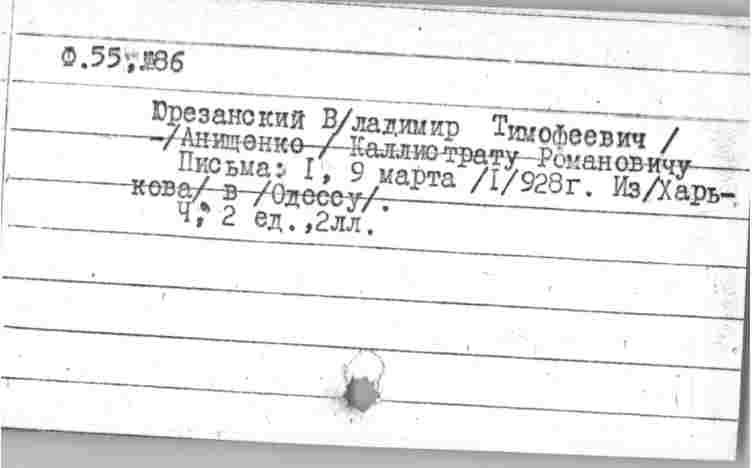 Ф.55, №86
Юрезанский В/ладимир Тимофеевич /
-/Анищенко / Каллистрату Романовичу
Письма: I, 9 марта /I/928г. Из/Харь-
кова/ в /Одессу/.
Ч, 2 ед.,2лл.